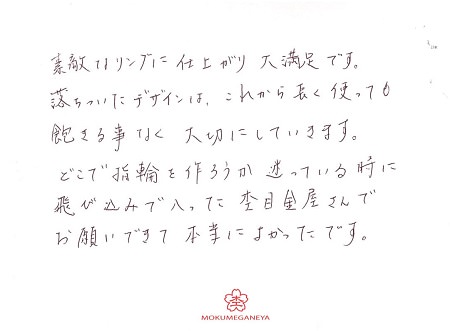 素敵なリングに仕上がり大満足です。
落ちついたデザインは、これから長く使っても
飽きる事なく大切にしていきます。
どこで指輪を作ろうか迷っている時に
飛び込みで入った杢目金屋さんで
お願いできて本当によかったです。
杢
MOKUMEGANEYA